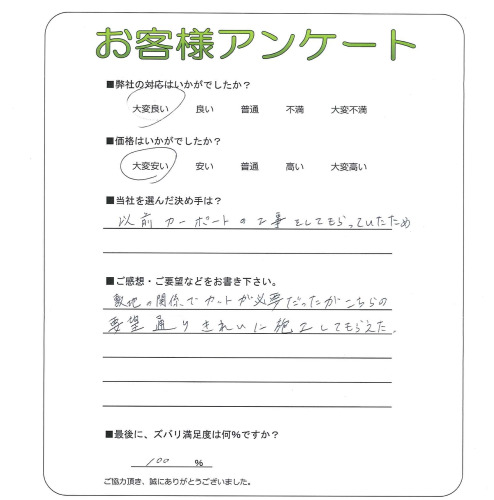 お客様アンケート
■弊社の対応はいかがでしたか？
大変良い 良い 普通 不満 大変不満
■価格はいかがでしたか？
大変安い 安い 普通 高い 大変高い
■当社を選んだ決め手は？
以前カーポートの工事をしてもらっていたため
■ご感想・ご要望などをお書き下さい。
敷地の関係でカットが必要だったがこちらの
要望通りきれいに施工してもらえた。
■最後に、ズバリ満足度は何%ですか？
100 %
ご協力頂き、誠にありがとうございました。